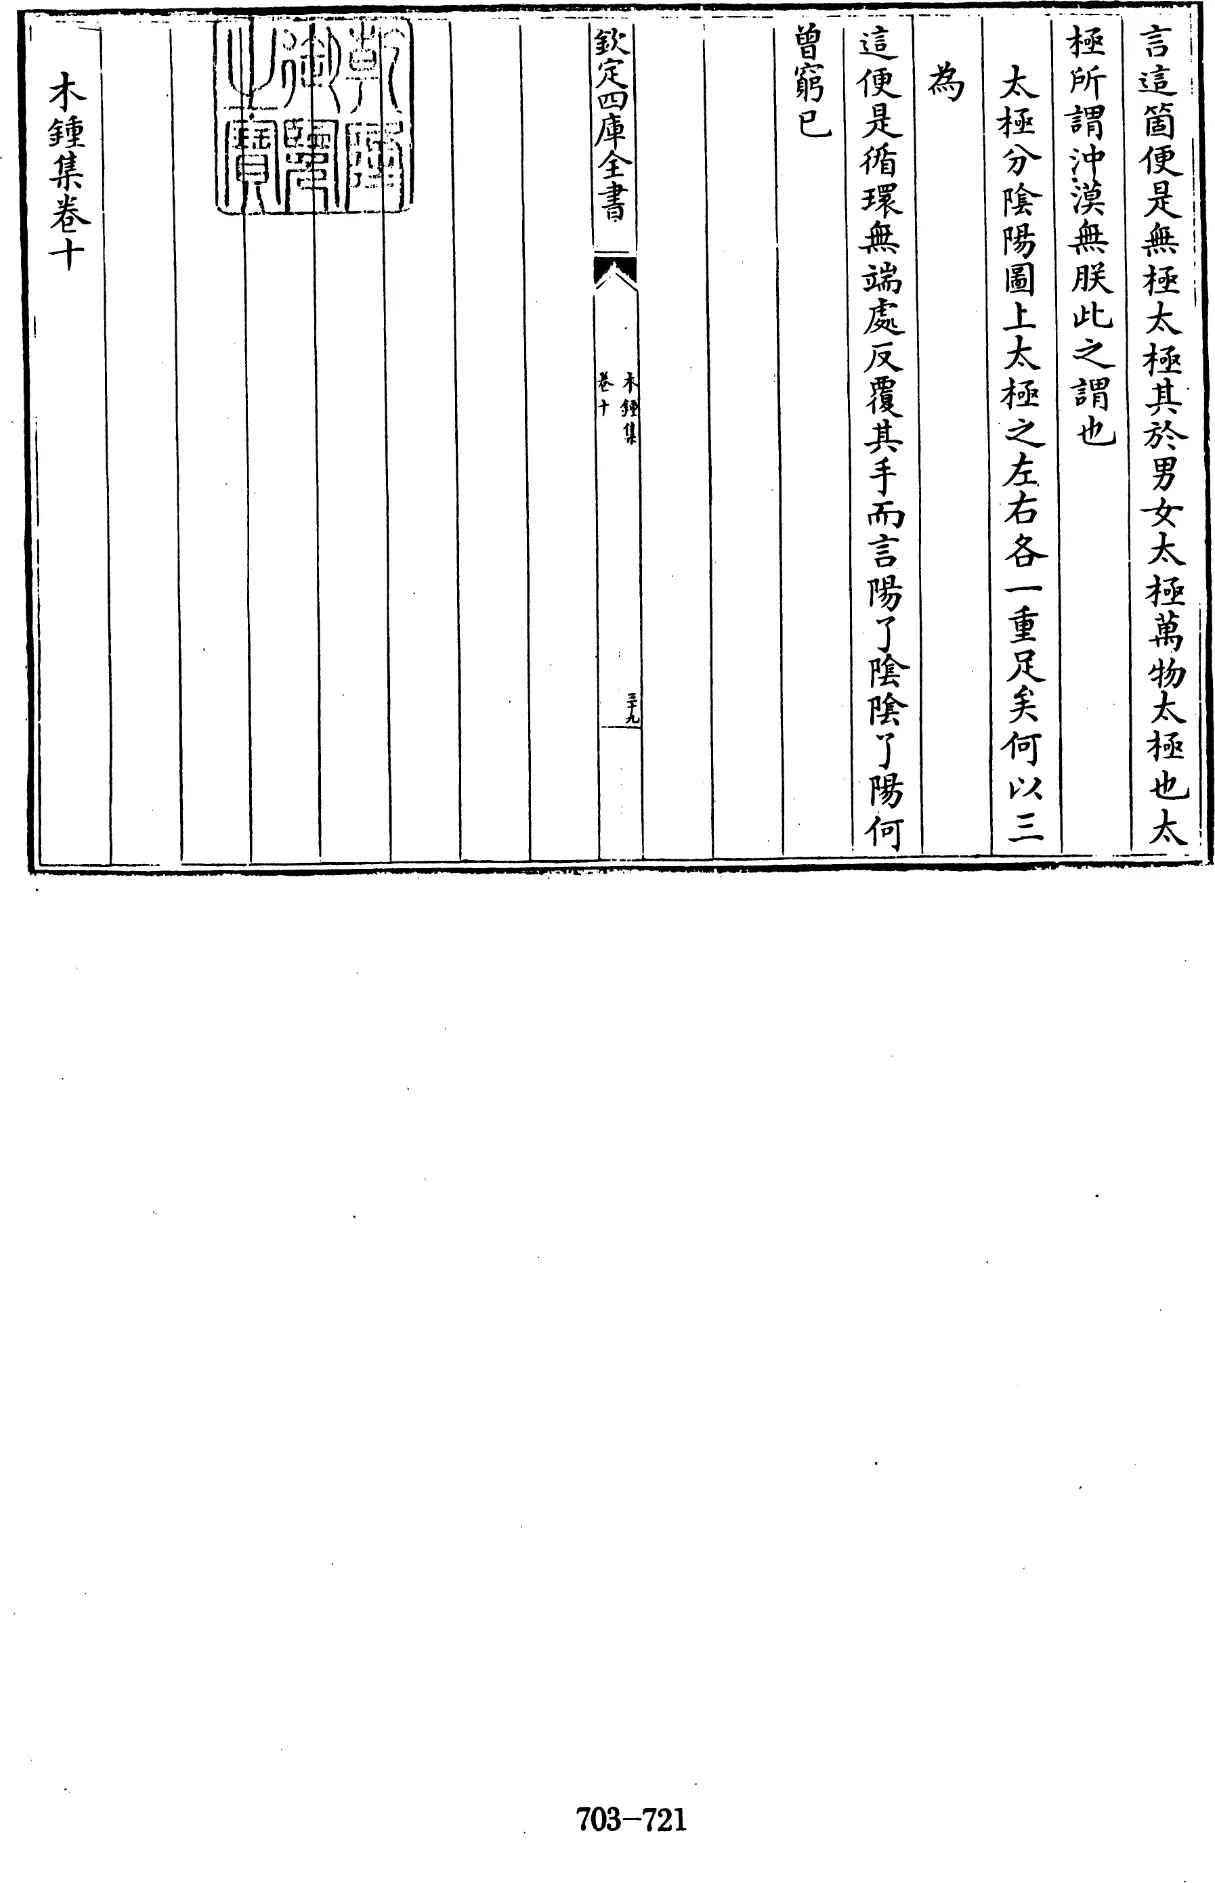 言這箇便是無極太極其於男女太極萬物太極也太
極所謂沖漠無朕此之謂也
太極分陰陽圖上太極之左右各一重足矣何以三
為
這便是循環無端處反覆其手而言陽了陰陰了陽何
曾窮已
欽定四庫全書
木鍾集
卷十
三十九
乾隆
御覽
之寶
木鍾集卷十
703-721